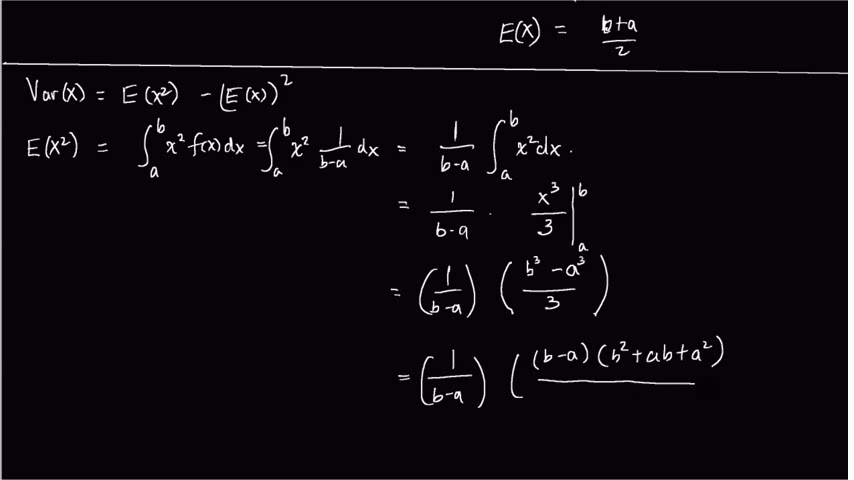 E(X) = b+a/2
Var(x) = E(x²) - (E(x))²
E(X²) = ∫ₐᵇ x² f(x) dx = ∫ₐᵇ x² 1/(b-a) dx = 1/(b-a) ∫ₐᵇ x² dx.
= 1/(b-a) · x³/3 |ₐᵇ
= (1/(b-a)) ((b³ - a³)/3)
= (1/(b-a)) ((b-a)(b²+ab+a²)